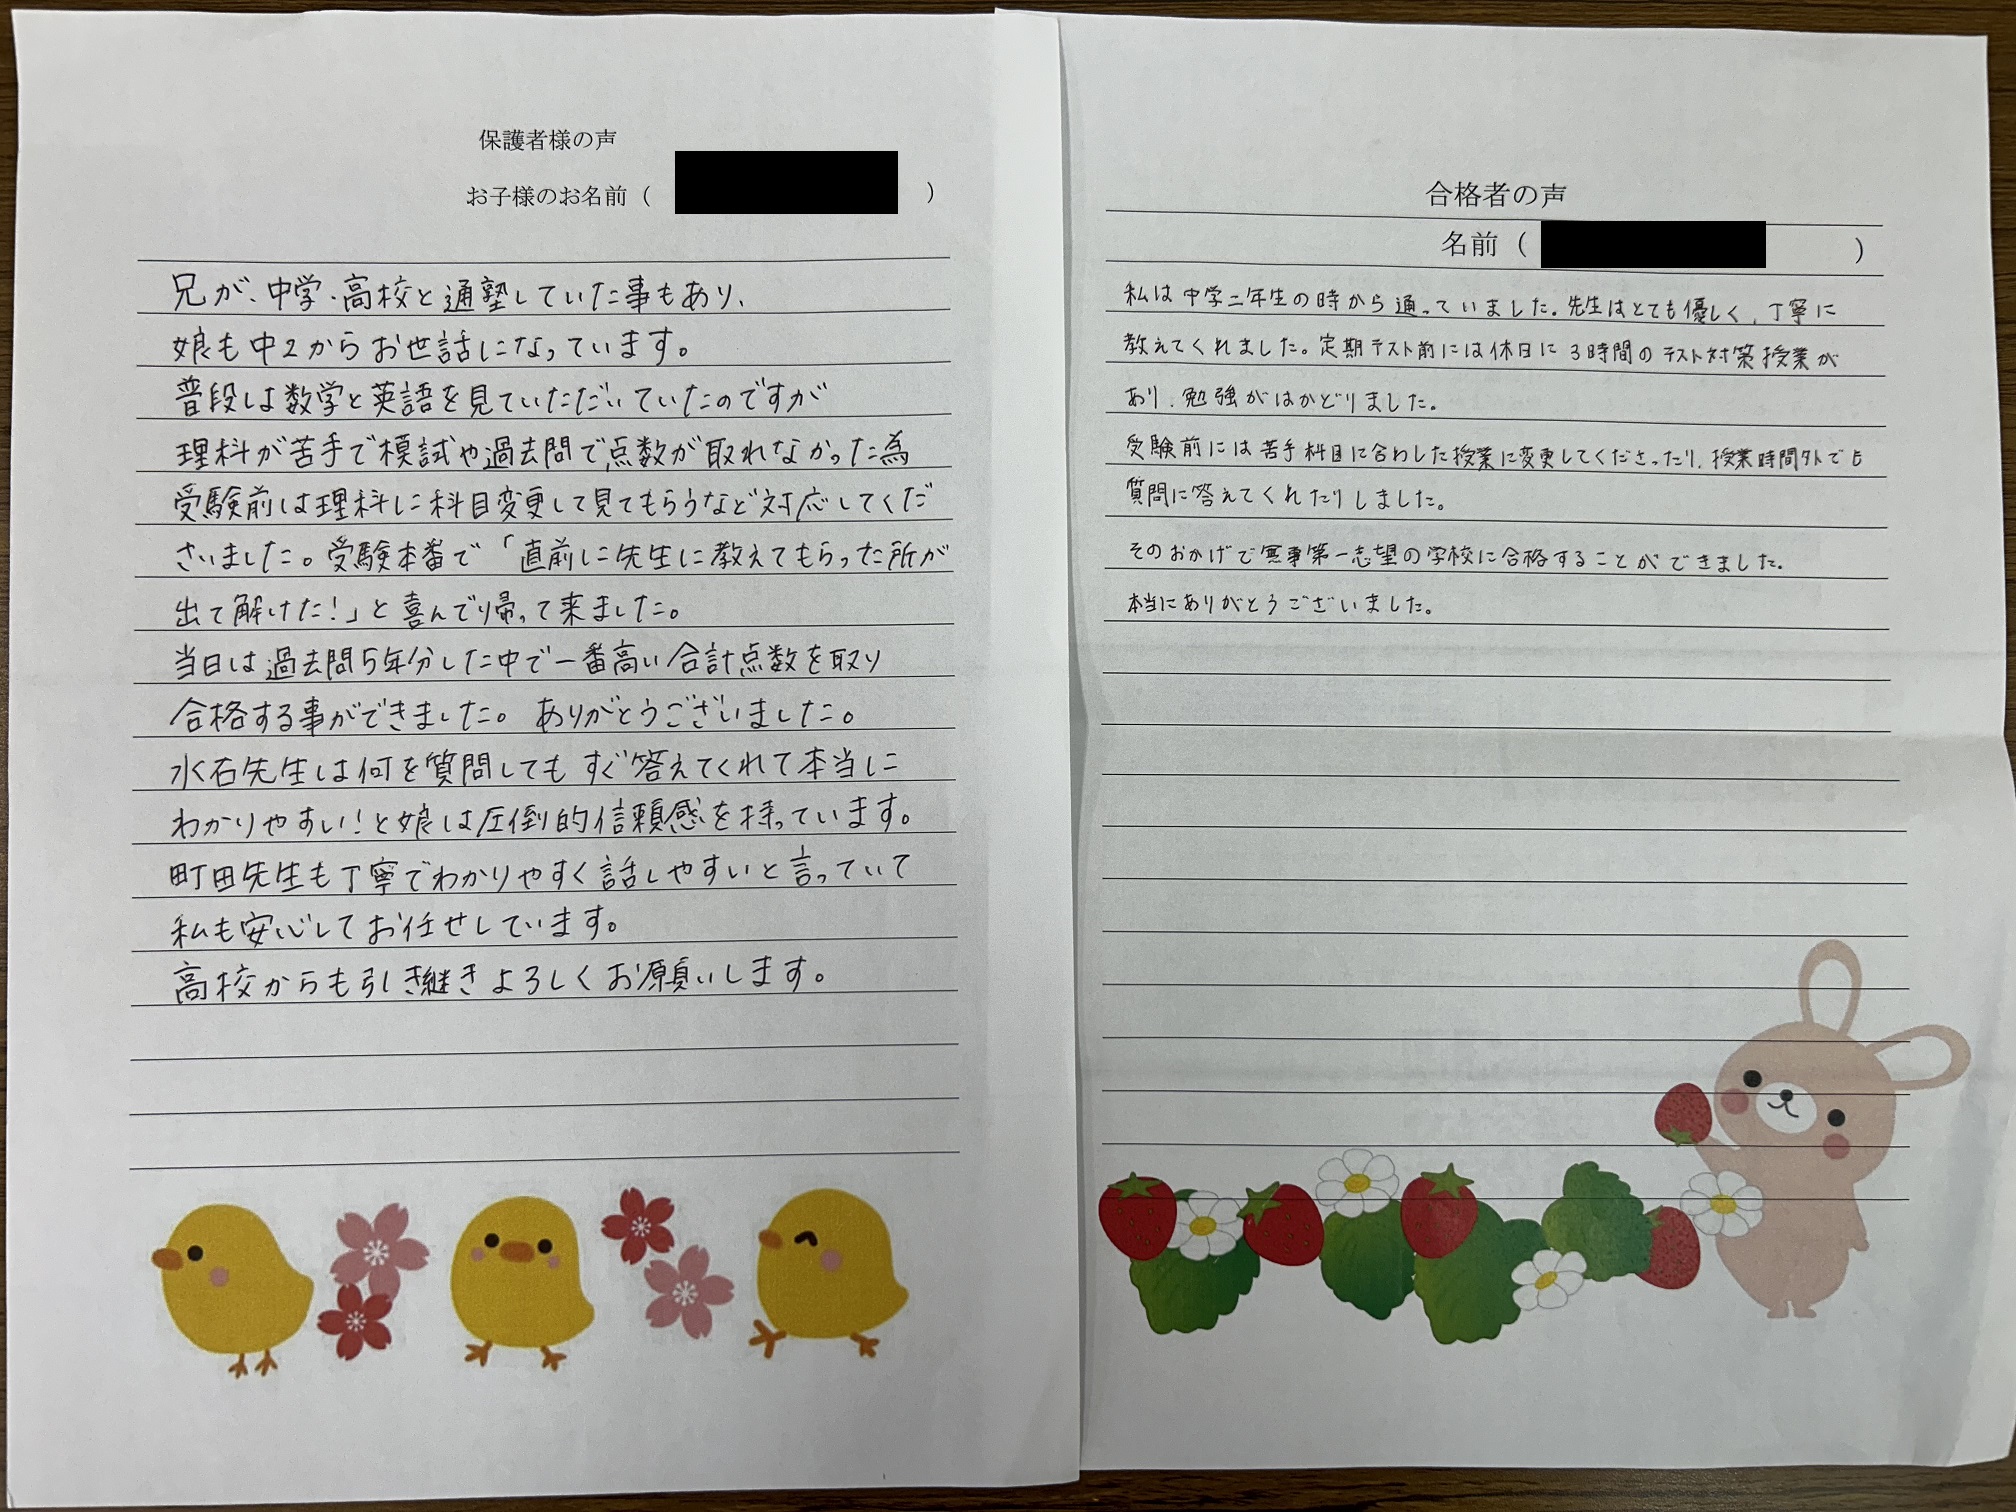 保護者様の声
お子様のお名前（　　　）
兄が、中学・高校と通塾していた事もあり、
娘も中2からお世話になっています。
普段は数学と英語を見ていただいていたのですが
理科が苦手で模試や過去問で点数が取れなかった為
受験前は理科に科目変更して見てもらうなど対応してくだ
さいました。受験本番で「直前に先生に教えてもらった所が
出て解けた！」と喜んで帰って来ました。
当日は過去問5年分した中で一番高い合計点数を取り
合格する事ができました。ありがとうございました。
水石先生は何を質問してもすぐ答えてくれて本当に
わかりやすい！と娘は圧倒的信頼感を持っています。
町田先生も丁寧でわかりやすく話しやすいと言っていて
私も安心してお任せしています。
高校からも引き継きよろしくお願いします。
合格者の声
名前（　　　）
私は中学二年生の時から通っていました。先生はとても優しく、丁寧に
教えてくれました。定期テスト前には休日に3時間のテスト対策授業が
あり、勉強がはかどりました。
受験前には苦手科目に合わした授業に変更してくださったり、授業時間外でも
質問に答えてくれたりしました。
そのおかげで無事第一志望の学校に合格することができました。
本当にありがとうございました。